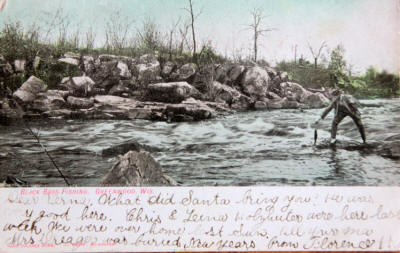 BLACK BASS FISHING, GREENWOOD, WIS.
Dear Verna, What did Santa bring you? He was
y good here. Chris & Laina Holzhuter were here last
week. We were over home last Sun. All your ma
Mrs. was buried New Years from Florence H